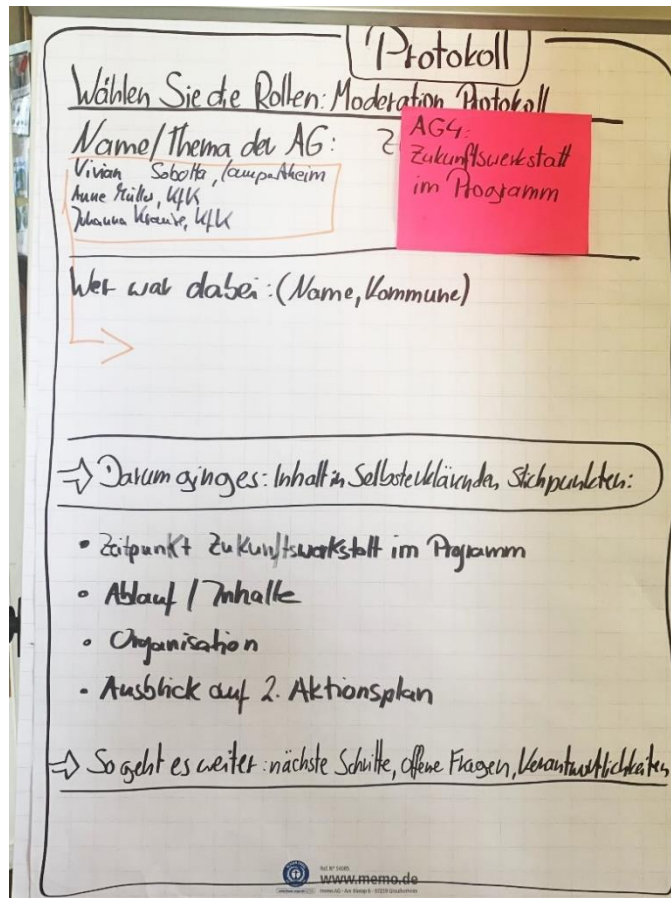 Protokoll
Wählen Sie die Rollen: Moderation, Protokoll
Name/Thema der AG: Z
AG4:
Zukunftswerkstatt
im Programm
Vivian Sobotta, Lampertheim
Anne Müller, KfK
Johanna Krause, KfK
Wer war dabei: (Name, Kommune)
⇒ Darum ging es: Inhalt in Selbsterklärenden Stichpunkten:
• Zeitpunkt Zukunftswerkstatt im Programm
• Ablauf / Inhalte
• Organisation
• Ausblick auf 2. Aktionsplan
⇒ So geht es weiter: nächste Schritte, offene Fragen, Verantwortlichkeiten
www.memo.de